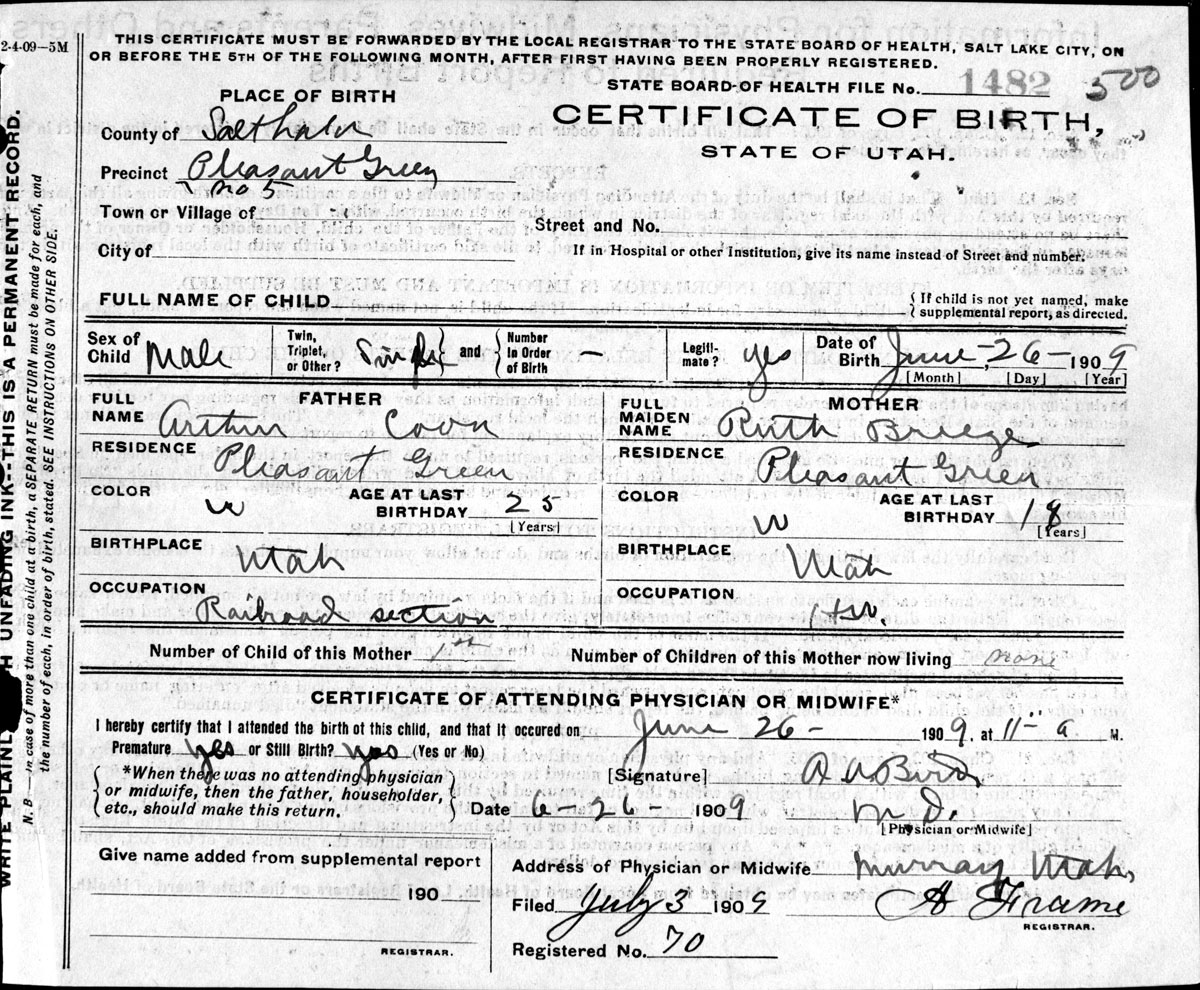 2-4-09—5M
THIS CERTIFICATE MUST BE FORWARDED BY THE LOCAL REGISTRAR TO THE STATE BOARD OF HEALTH, SALT LAKE CITY, ON
OR BEFORE THE 5TH OF THE FOLLOWING MONTH, AFTER FIRST HAVING BEEN PROPERLY REGISTERED.
STATE BOARD OF HEALTH FILE No. 1482 500
PLACE OF BIRTH
CERTIFICATE OF BIRTH,
STATE OF UTAH.
County of Salt Lake
Precinct Pleasant Green
no 5
Town or Village of
Street and No.
City of
If in Hospital or other Institution, give its name instead of Street and number.
FULL NAME OF CHILD
{ If child is not yet named, make
supplemental report, as directed.
Sex of Child Male Twin, Triplet, or Other? Single } and { Number in Order of Birth — Legiti-mate? yes Date of Birth June - 26 - 1909
[Month] [Day] [Year]
FATHER MOTHER
FULL NAME Arthur Coon FULL MAIDEN NAME Ruth
RESIDENCE Pleasant Green RESIDENCE Pleasant Green
COLOR W AGE AT LAST BIRTHDAY 25 [Years] COLOR W AGE AT LAST BIRTHDAY 18 [Years]
BIRTHPLACE Utah BIRTHPLACE Utah
OCCUPATION Railroad section OCCUPATION HW
Number of Child of this Mother 1st Number of Children of this Mother now living none
CERTIFICATE OF ATTENDING PHYSICIAN OR MIDWIFE*
I hereby certify that I attended the birth of this child, and that it occured on June 26 - 1909, at 11- a. M.
Premature yes or Still Birth? yes (Yes or No)
{ *When there was no attending physician
or midwife, then the father, householder,
etc., should make this return. }
[Signature]
Date 6-26- 1909 M.D.
[Physician or Midwife]
Give name added from supplemental report
190
REGISTRAR.
Address of Physician or Midwife Murray Utah,
Filed July 3 1909 A Frame
REGISTRAR.
Registered No. 70
H UNFADING INK--THIS IS A PERMANENT RECORD.
WRITE PLAINLY
N. B In case of more than one child at a birth, a SEPARATE RETURN must be made for each, and
the number of each, in order of birth, stated. SEE INSTRUCTIONS ON OTHER SIDE.